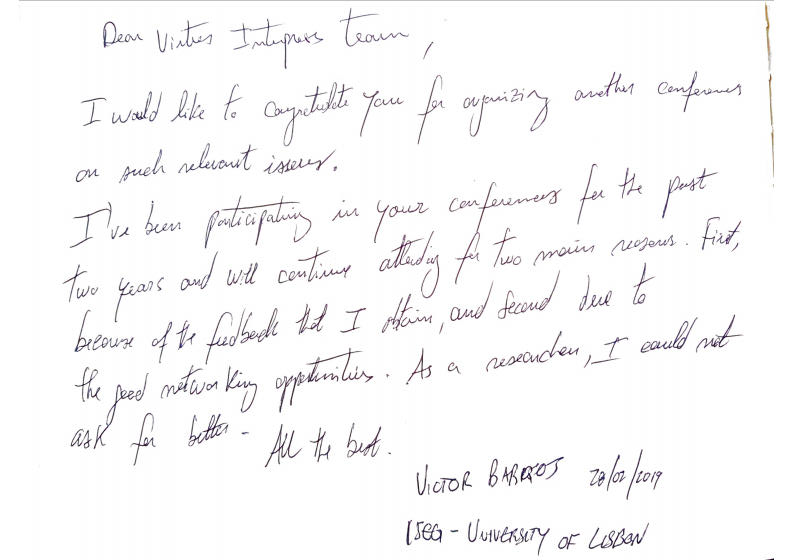 Dear Virtus Interpress team,
I would like to congratulate you for organizing another conference
on such relevant issues.
I've been participating in your conferences for the past
two years and will continue attending for two main reasons. First,
because of the feedback that I obtain, and second due to
the good networking opportunities. As a researcher, I could not
ask for better - All the best.
VICTOR BARROS 28/02/2019
ISEG - UNIVERSITY OF LISBON